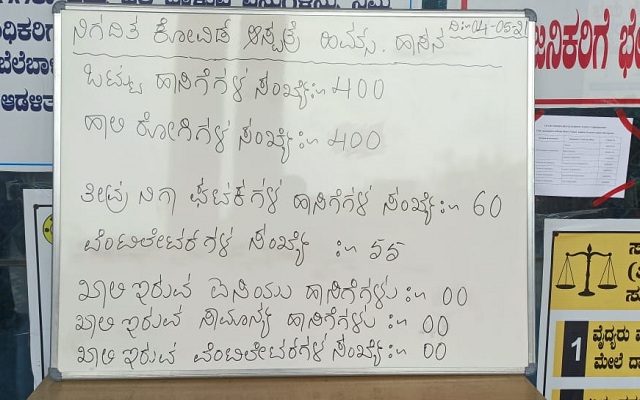 ನಿಗದಿತ ಕೋವಿಡ್ ಆಸ್ಪತ್ರೆ ಹಿಮ್ಸ್. ಹಾಸನ
ದಿ:-04-05-21
ಒಟ್ಟು ಹಾಸಿಗೆಗಳ ಸಂಖ್ಯೆ:- 400
ಹಾಲಿ ರೋಗಿಗಳ ಸಂಖ್ಯೆ:- 400
ತೀವ್ರ ನಿಗಾ ಘಟಕಗಳ ಹಾಸಿಗೆಗಳ ಸಂಖ್ಯೆ:- 60
ವೆಂಟಿಲೇಟರಗಳ ಸಂಖ್ಯೆ :- 55
ಖಾಲಿ ಇರುವ ಐಸಿಯು ಹಾಸಿಗೆಗಳು :- 00
ಖಾಲಿ ಇರುವ ಸಾಮಾನ್ಯ ಹಾಸಿಗೆಗಳು :- 00
ಖಾಲಿ ಇರುವ ವೆಂಟಿಲೇಟರಗಳ ಸಂಖ್ಯೆ:- 00
ಜನಿಕರಿಗೆ ಭೇ
ಧಿಕರಿಗ
ಬೆಲೆಬಾ
ಆಡಳಿತ
1 ವೈದ್ಯರು
ಮೇಲೆ ದಾ